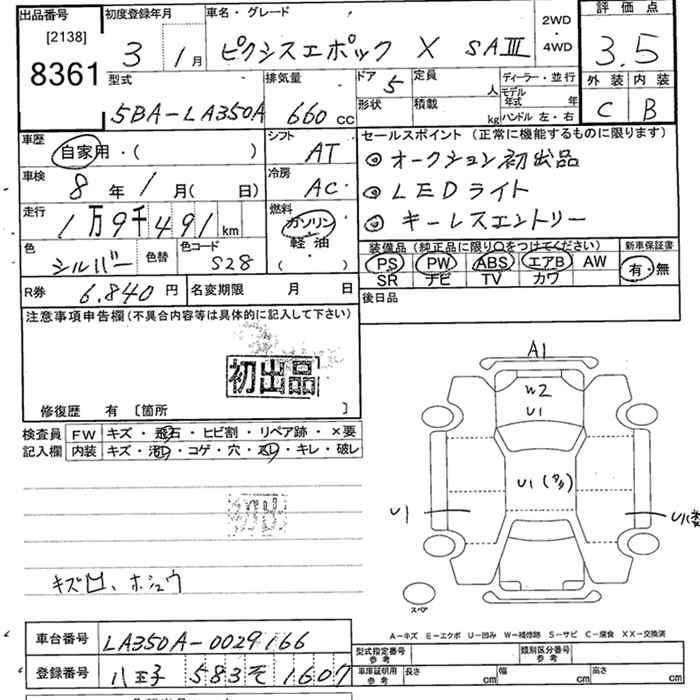 出品番号
[2138]
8361
初度登録年月
3 1月
車名・グレード
ピクシスエポック X SAⅢ
2WD
・
4WD
評価点
3.5
外装 内装
C B
型式
5BA-LA350A
排気量
660 cc
ドア 5
形状
定員 人
積載 kg
ディーラー・並行
モデル年式 年
ハンドル 左・右
車歴
自家用・( )
シフト
AT
車検
8年 1月( 日)
冷房
AC
走行
1万9千491 km
燃料
ガソリン
・
軽油
・
( )
色
シルバー
色替
色コード
S28
セールスポイント (正常に機能するものに限ります)
◎ オークション初出品
◎ LEDライト
◎ キーレスエントリー
装備品 (純正品に限り○をつけてください)
PS PW ABS エアB AW
SR ナビ TV カワ
新車保証書
有・無
R券 6.840円
名変期限 月 日
後日品
注意事項申告欄(不具合内容等は具体的に記入して下さい)
初出品
修復歴 有 〔箇所 〕
検査員
記入欄
FW キズ・飛石・ヒビ割・リペア跡・×要
内装 キズ・汚レ・コゲ・穴・スレ・キレ・破レ
初出
キズ凹、ホシュウ
A1
W2
U1
U1
U1
スペア
A-キズ E-エクボ U-凹み W-補修跡 S-サビ C-腐食 XX-交換済
車台番号
LA350A-0029166
登録番号
八王子 583 そ 1607
型式指定番号
参考
類別区分番号
参考
車庫証明用
参考
長さ cm
幅 cm
高さ cm